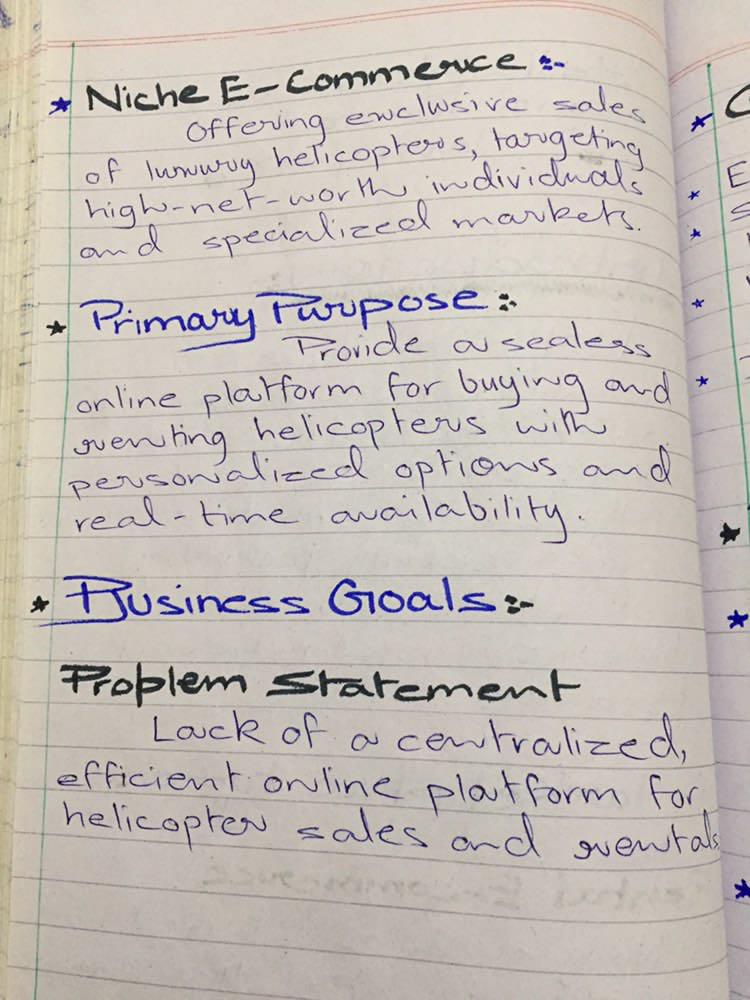 * Niche E-Commerce :-
Offering exclusive sales
of luxury helicopters, targeting
high-net-worth individuals
and specialized markets.
* Primary Purpose :-
Provide a sealess
online platform for buying and
renting helicopters with
personalized options and
real-time availability.
* Business Goals :-
Problem Statement
Lack of a centralized,
efficient online platform for
helicopter sales and rentals